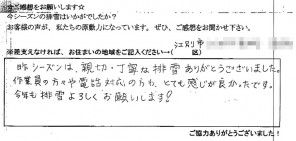 ご感想をお願いします☆
今シーズンの排雪はいかがでしたか?
お客様の声が、私たちの原動力になっています。ぜひ、ご感想をお聞かせ下さい。
※差支えなければ、お住まいの地域をご記入ください→( 江別市 区)
昨シーズンは、親切・丁寧な排雪ありがとうございました。
作業員の方々や電話対応の方も、とても感じが良かったです。
今年も排雪よろしくお願いします!
ご協力ありがとうございました!